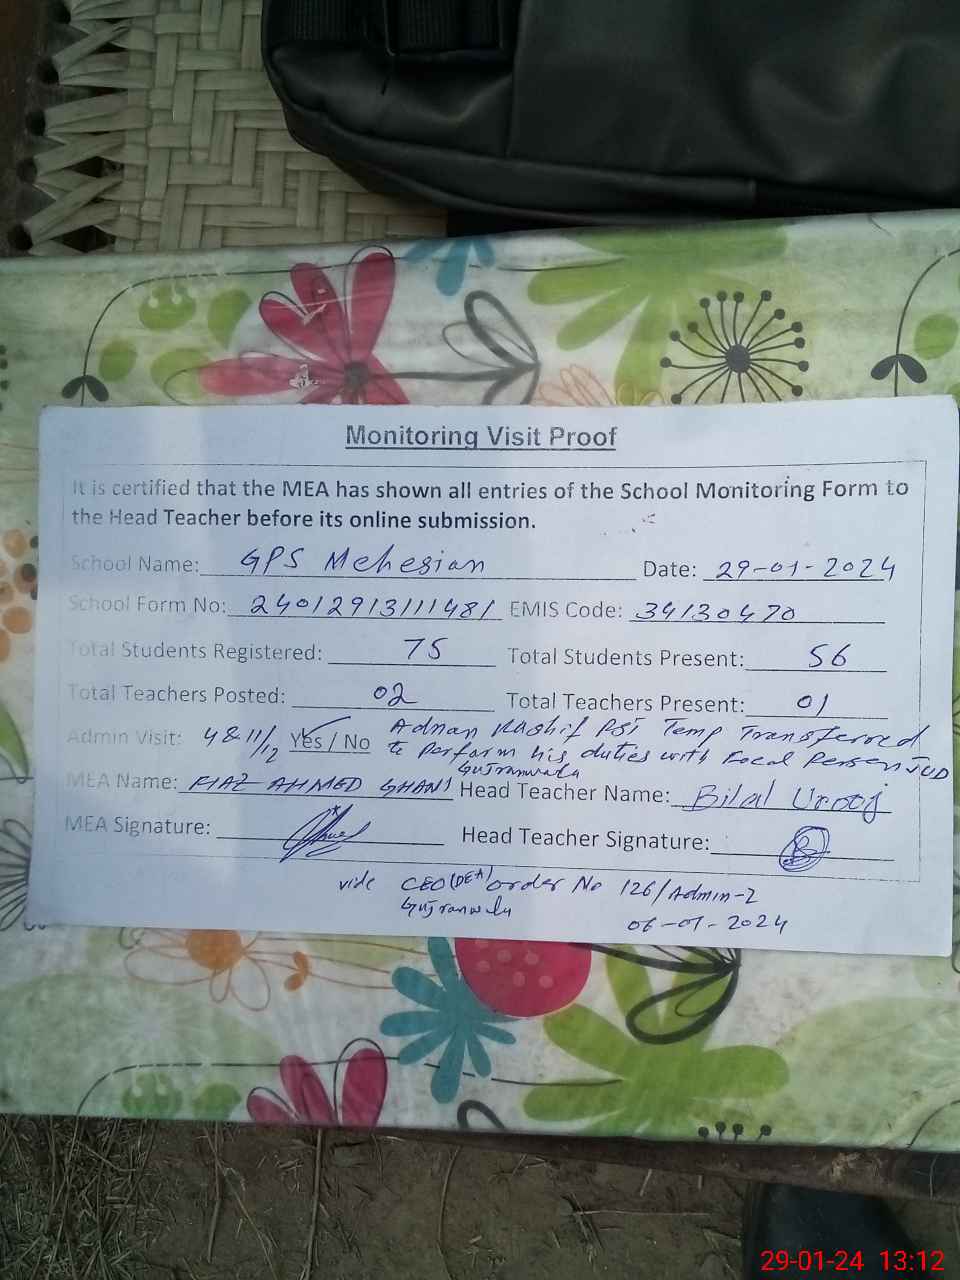 Monitoring Visit Proof
It is certified that the MEA has shown all entries of the School Monitoring Form to
the Head Teacher before its online submission.
School Name: GPS Mehesian Date: 29-01-2024
School Form No: 24012913111481 EMIS Code: 34130470
Total Students Registered: 75 Total Students Present: 56
Total Teachers Posted: 02 Total Teachers Present: 01
Admin Visit: 4 & 11/12 Yes / No Adnan Kashif PST Temp Transferred
to perform his duties with Focal Person
Gujranwala
MEA Name: FIAZ AHMED GHANI Head Teacher Name: Bilal Urooj
MEA Signature: Head Teacher Signature:
vide CEO (DEA) order No 126/Admin-2
Gujranwala 06-01-2024
29-01-24 13:12